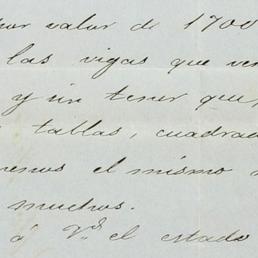 por valor de 1700
las vigas que ven
y sin tener que,
tablas, cuadrad
menos el mismo
muchos.
á Vd. el estado